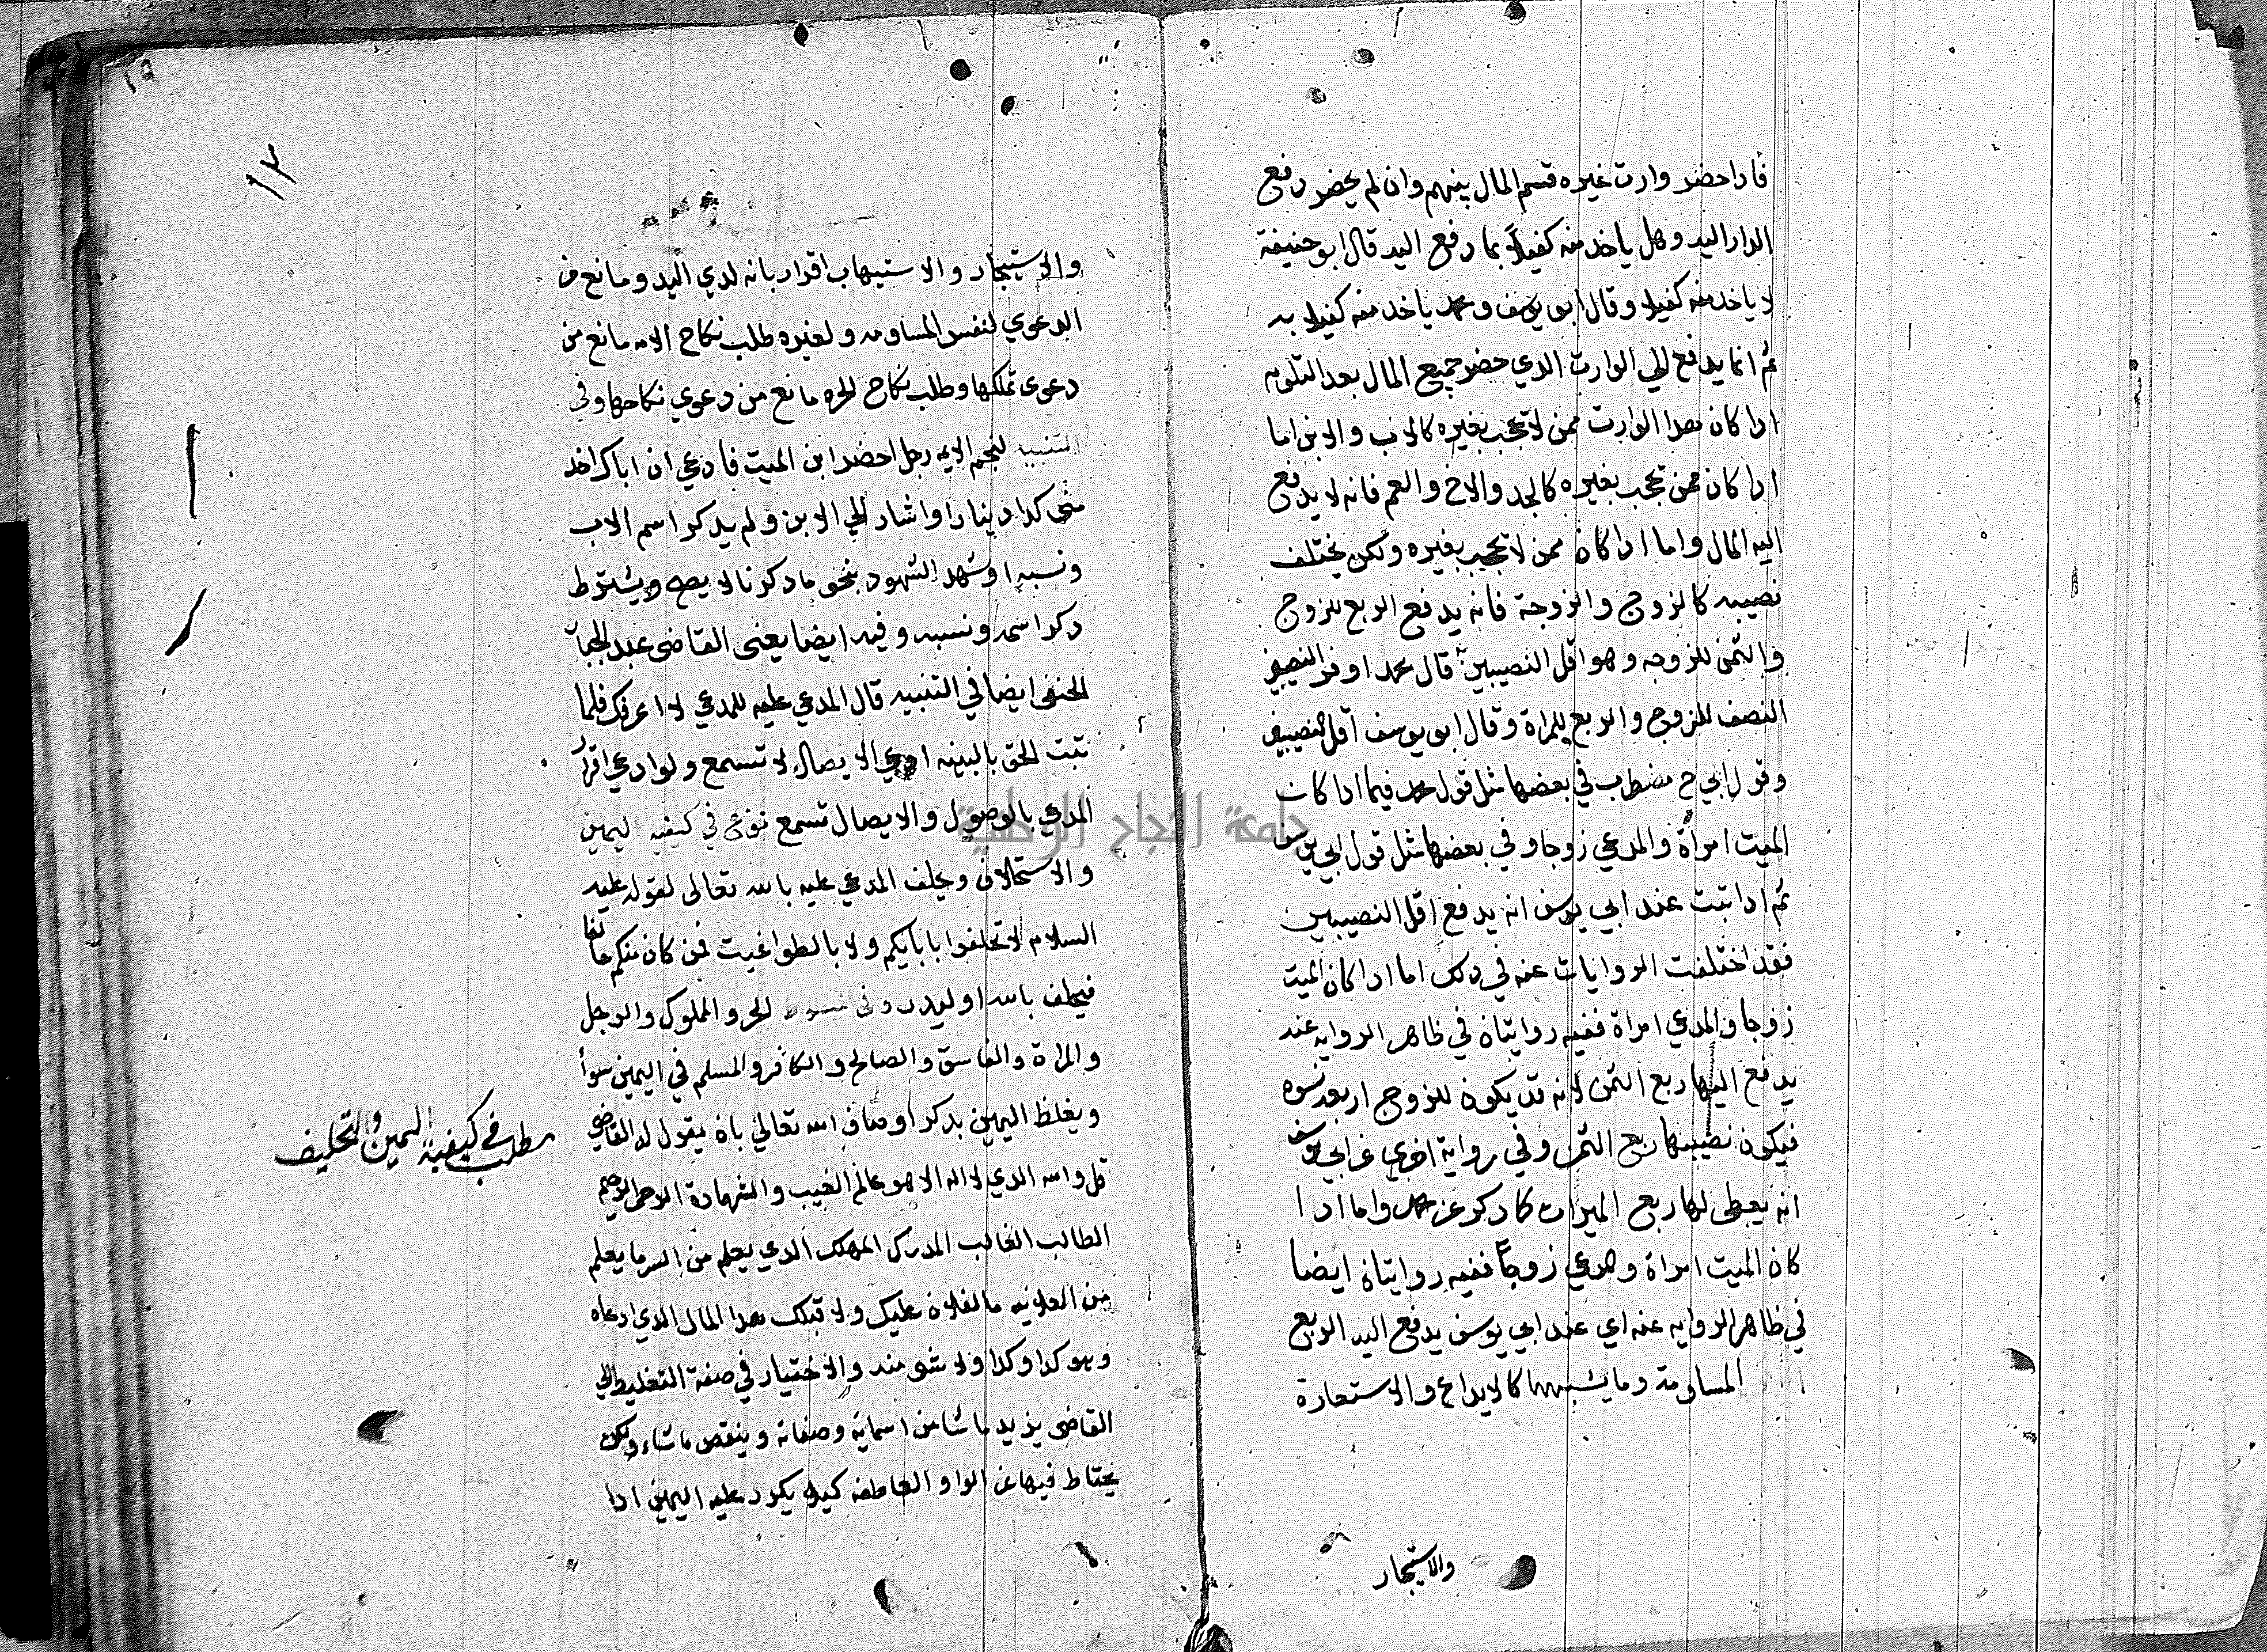 فاداحضر وارت غيره قسم المال بينهم وان لم يحضر دفع
الدار اليه وهل ياخد منه كفيلا بما دفع اليه قال ابو حنيفة
لا ياخد منه كفيلا وقال ابو يوسف ومحمد ياخد منه كفيلا به
ثم انما يدفع الي الوارت الدي حضر جميع المال بعد التلوم
ادا كان هدا الوارت ممن لا يحجب بغيره كالاب والابن اما
ادا كان ممن يحجب بغيره كالجد والاخ والعم فانه لا يدفع
اليه المال واما ادا كان ممن لا يحجب بغيره ولكن يختلف
نصيبه كالزوج والزوجة فانه يدفع الربع للزوج
والتمن للزوجه وهو اقل النصيبين قال محمد اوفر النصيبين
النصف للزوج والربع للمراة وقال ابو يوسف اقل النصيبين
وقول ابي ح مضطرب في بعضها مثل قول محمد فيما ادا كان
الميت امراة والمدعي زوجا وفي بعضها مثل قول ابي يوسف
ثم ادا تبت عند ابي يوسف انه يدفع اقل النصيبين
فقد اختلفت الروايات عنه في دلك اما ادا كان الميت
زوجا والمدعي امراة ففيه روايتان في ظاهر الروايه عنه
يدفع اليها ربع التمن لانه قد يكون للزوج اربع نسوه
فيكون نصيبها ربع التمن وفي رواية اخري عن ابي يوسف
انه يعطى لها ربع الميرات كما دكر عن محمد واما ادا
كان الميت امراة والمدعي زوجا ففيه روايتان ايضا
في ظاهر الروايه عنه اي عند ابي يوسف يدفع اليه الربع
المساومة وما يشبهها كالايداع والاستعارة
والاستيجار
١٣
والاستيجار والاستيهاب اقرار بانه لدي اليد ومانع من
الدعوي لنفس المساومه ولغيره طلب نكاح الامه مانع من
دعوى تملكها وطلب نكاح الحره مانع من دعوي نكاحها وفي
التنبيه لنجم الايمه رجل احضر ابن الميت فادعي ان اباك اخد
مني كدا دينارا واشار الي الابن ولم يدكر اسم الاب
ونسبه او شهد الشهود بنحو مادكرنا لا يصح ويشترط
دكر اسمه ونسبه وفيه ايضا يعنى القاضى عبد الجبار
الحنفى ايضا في التنبيه قال المدعي عليه للمدعي لا اعرفك فلما
تبت الحق بالبينه ادعي الايصال لا تسمع ولو ادعي اقرار
المدعي بالوصول والايصال تسمع نوع في كيفيه اليمين
والاستحلاف ويحلف المدعي عليه بالله تعالى لقوله عليه
السلام لا تحلفوا بابايكم ولا بالطواغيت فمن كان منكم حالفا
فيحلف بالله او ليدر وفي المبسوط الحر والمملوك والرجل
والمراة والفاسق والصالح والكافر والمسلم في اليمين سوأ
ويغلظ اليمين بدكر اوصاف الله تعالي بان يقول له القاضي
قل والله الدي لا اله الا هو عالم الغيب والشهادة الرحمن الرحيم
الطالب الغالب المدرك المهلك الدي يعلم من السر ما يعلم
من العلانيه ما لفلان عليك ولا قبلك هدا المال الدي ادعاه
وهو كدا وكدا ولا شى منه والاختيار في صفة التغليط الي
القاضى يزيد ماشا من اسمايه وصفاته وينقص ماشاء ولكن
يحتاط فيها عن الواو العاطفه كيلا يكرر عليه اليمين ادا
مطلب في كيفية اليمين والتحليف
جامعة النجاح الوطنية